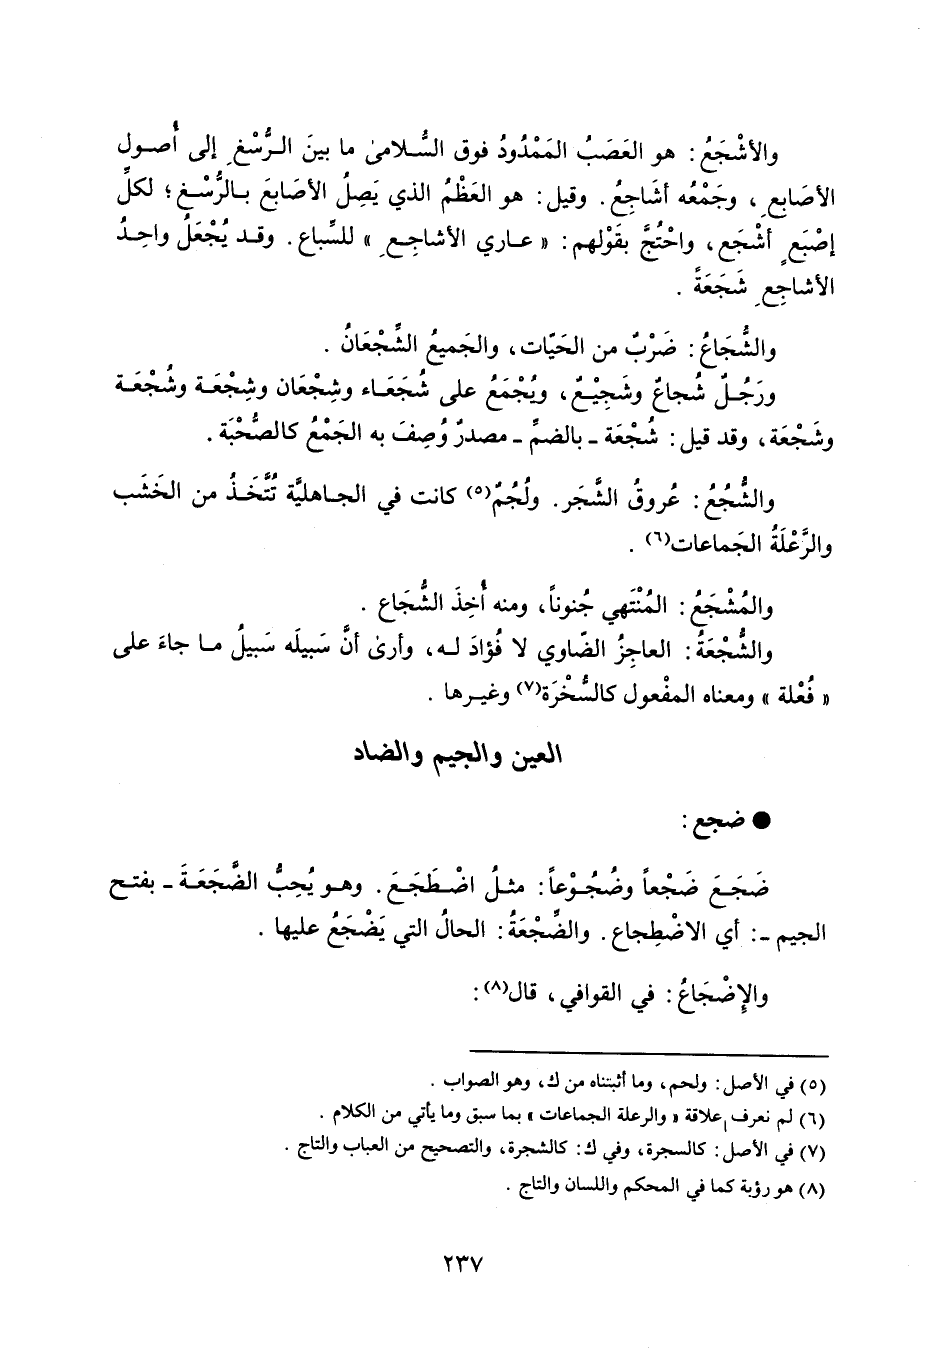 والأشْجَعُ: هو العَصَبُ المَمْدُودُ فوق السُّلامىٰ ما بينَ الرُّسْغِ إلى أُصول
الأصَابعِ، وجَمْعُه أشَاجِعُ. وقيل: هو العَظْمُ الذي يَصِلُ الأصَابعَ بالرُّسْغ؛ لكلِّ
إصْبَعٍ أشْجَع، واحْتُجَّ بقَوْلهم: « عاري الأشاجعِ » للسِّباع. وقد يُجْعَلُ واحِدُ
الأشاجِعِ شَجَعَةً .
والشُّجَاعُ: ضَرْبٌ من الحَيّات، والجَميعُ الشِّجْعَانُ .
ورَجُلٌ شُجاعٌ وشَجِيْعٌ، ويُجْمَعُ على شُجَعَاء وشِجْعَان وشِجْعَة وشُجْعَة
وشَجْعَة، وقد قيل: شُجْعَة ـ بالضمِّ ـ مصدرٌ وُصِفَ به الجَمْعُ كالصُّحْبَة .
والشُّجُعُ: عُروقُ الشَّجَر. ولُجُمٌ(٥) كانت في الجاهليَّة تُتَّخَذُ من الخَشَب
والرَّعْلَةُ الجَماعات(٦) .
والمُشْجَعُ: المُنْتَهي جُنوناً، ومنه أُخِذَ الشُّجَاع .
والشُّجْعَةُ: العاجِزُ الضّاوي لا فُؤادَ له، وأرىٰ أنَّ سَبيلَه سَبيلُ ما جاءَ على
« فُعْلة » ومعناه المفْعول كالسُّخْرَة(٧) وغيرها .
العين والجيم والضاد
● ضجع:
ضَجَعَ ضَجْعاً وضُجُوْعاً: مثلُ اضْطَجَعَ. وهو يُحِبُّ الضَّجَعَةَ ـ بفتح
الجيم ـ: أي الاضْطِجاع. والضِّجْعَةُ: الحالُ التي يَضْجَعُ عليها .
والإضْجَاعُ: في القوافي، قال(٨):
(٥) في الأصل: ولحم، وما أثبتناه من ك، وهو الصواب .
(٦) لم نعرف علاقة « والرعلة الجماعات » بما سبق وما يأتي من الكلام .
(٧) في الأصل: كالسجرة، وفي ك: كالشجرة، والتصحيح من العباب والتاج .
(٨) هو رؤبة كما في المحكم واللسان والتاج .
٢٣٧